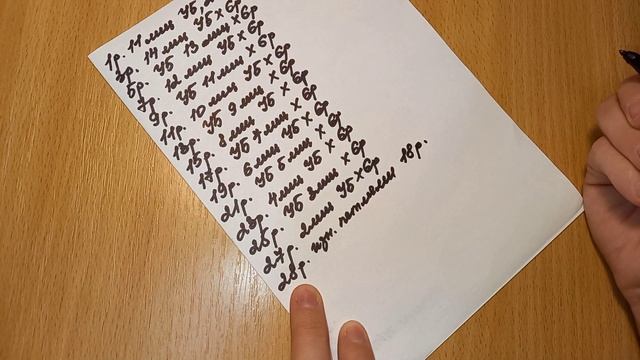 1р. 11 лиц УБ,
3р. 14 лиц УБ x 6р
5р. УБ 13 лиц x 6р
7р. 12 лиц УБ x 6р
9р. УБ 11 лиц x 6р
11р. 10 лиц УБ x 6р
13р. УБ 9 лиц x 6р
15р. 8 лиц УБ x 6р
17р. УБ 7 лиц x 6р
19р. 6 лиц УБ x 6р
21р. УБ 5 лиц x 6р
23р. 4 лиц УБ x 6р
25р. УБ 3 лиц x 6р
27р. 2 лиц УБ x 6р
28р. изн. петлями 18р.